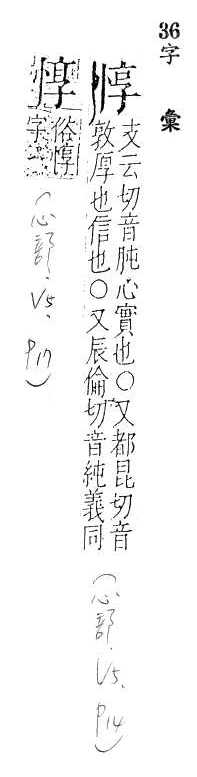 36 字 彙
惇
支云切音肫心實也○又都昆切音
敦厚也信也○又辰倫切音純義同
(心部. V5. P14)
俗惇
字
(心部. V5. P17)